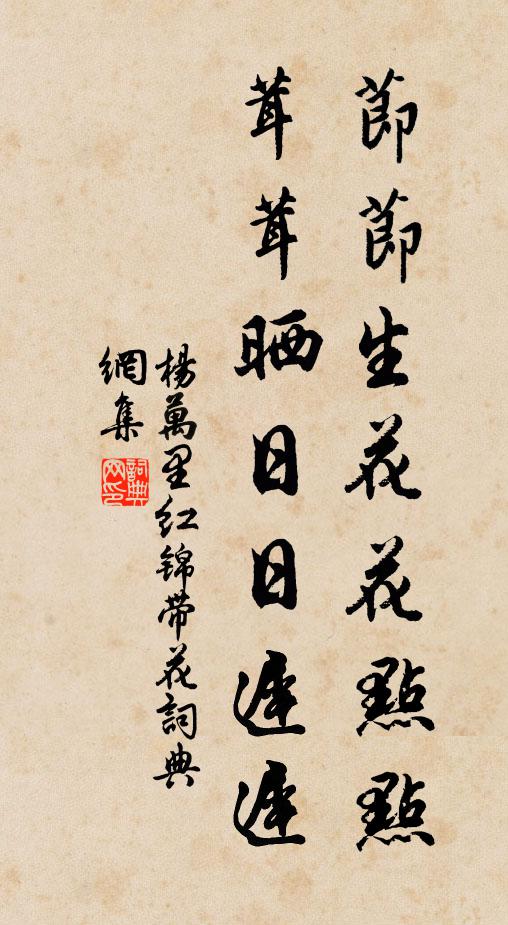 節節生花花點點
茸茸晒日日遲遲
楊萬里紅錦带花詞典
網集
詞典網印